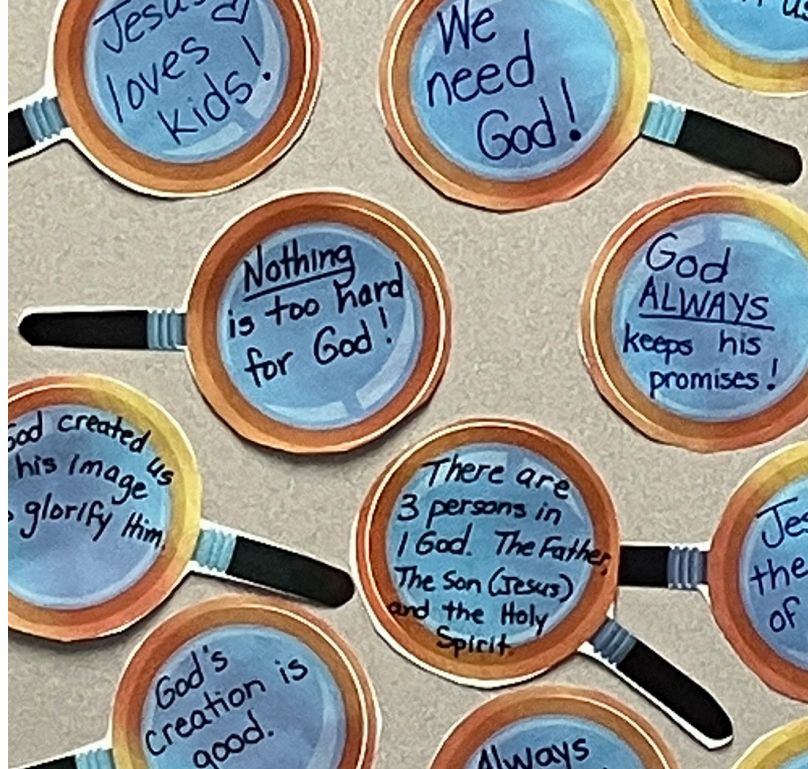 Jesus
loves
kids!
We
need
God!
us
Nothing
is too hard
for God!
God
ALWAYS
keeps his
promises!
God created us
his image
glorify Him.
There are
3 persons in
1 God. The Father,
The Son (Jesus)
and the Holy
Spirit.
the
of
God's
creation is
good.
Always